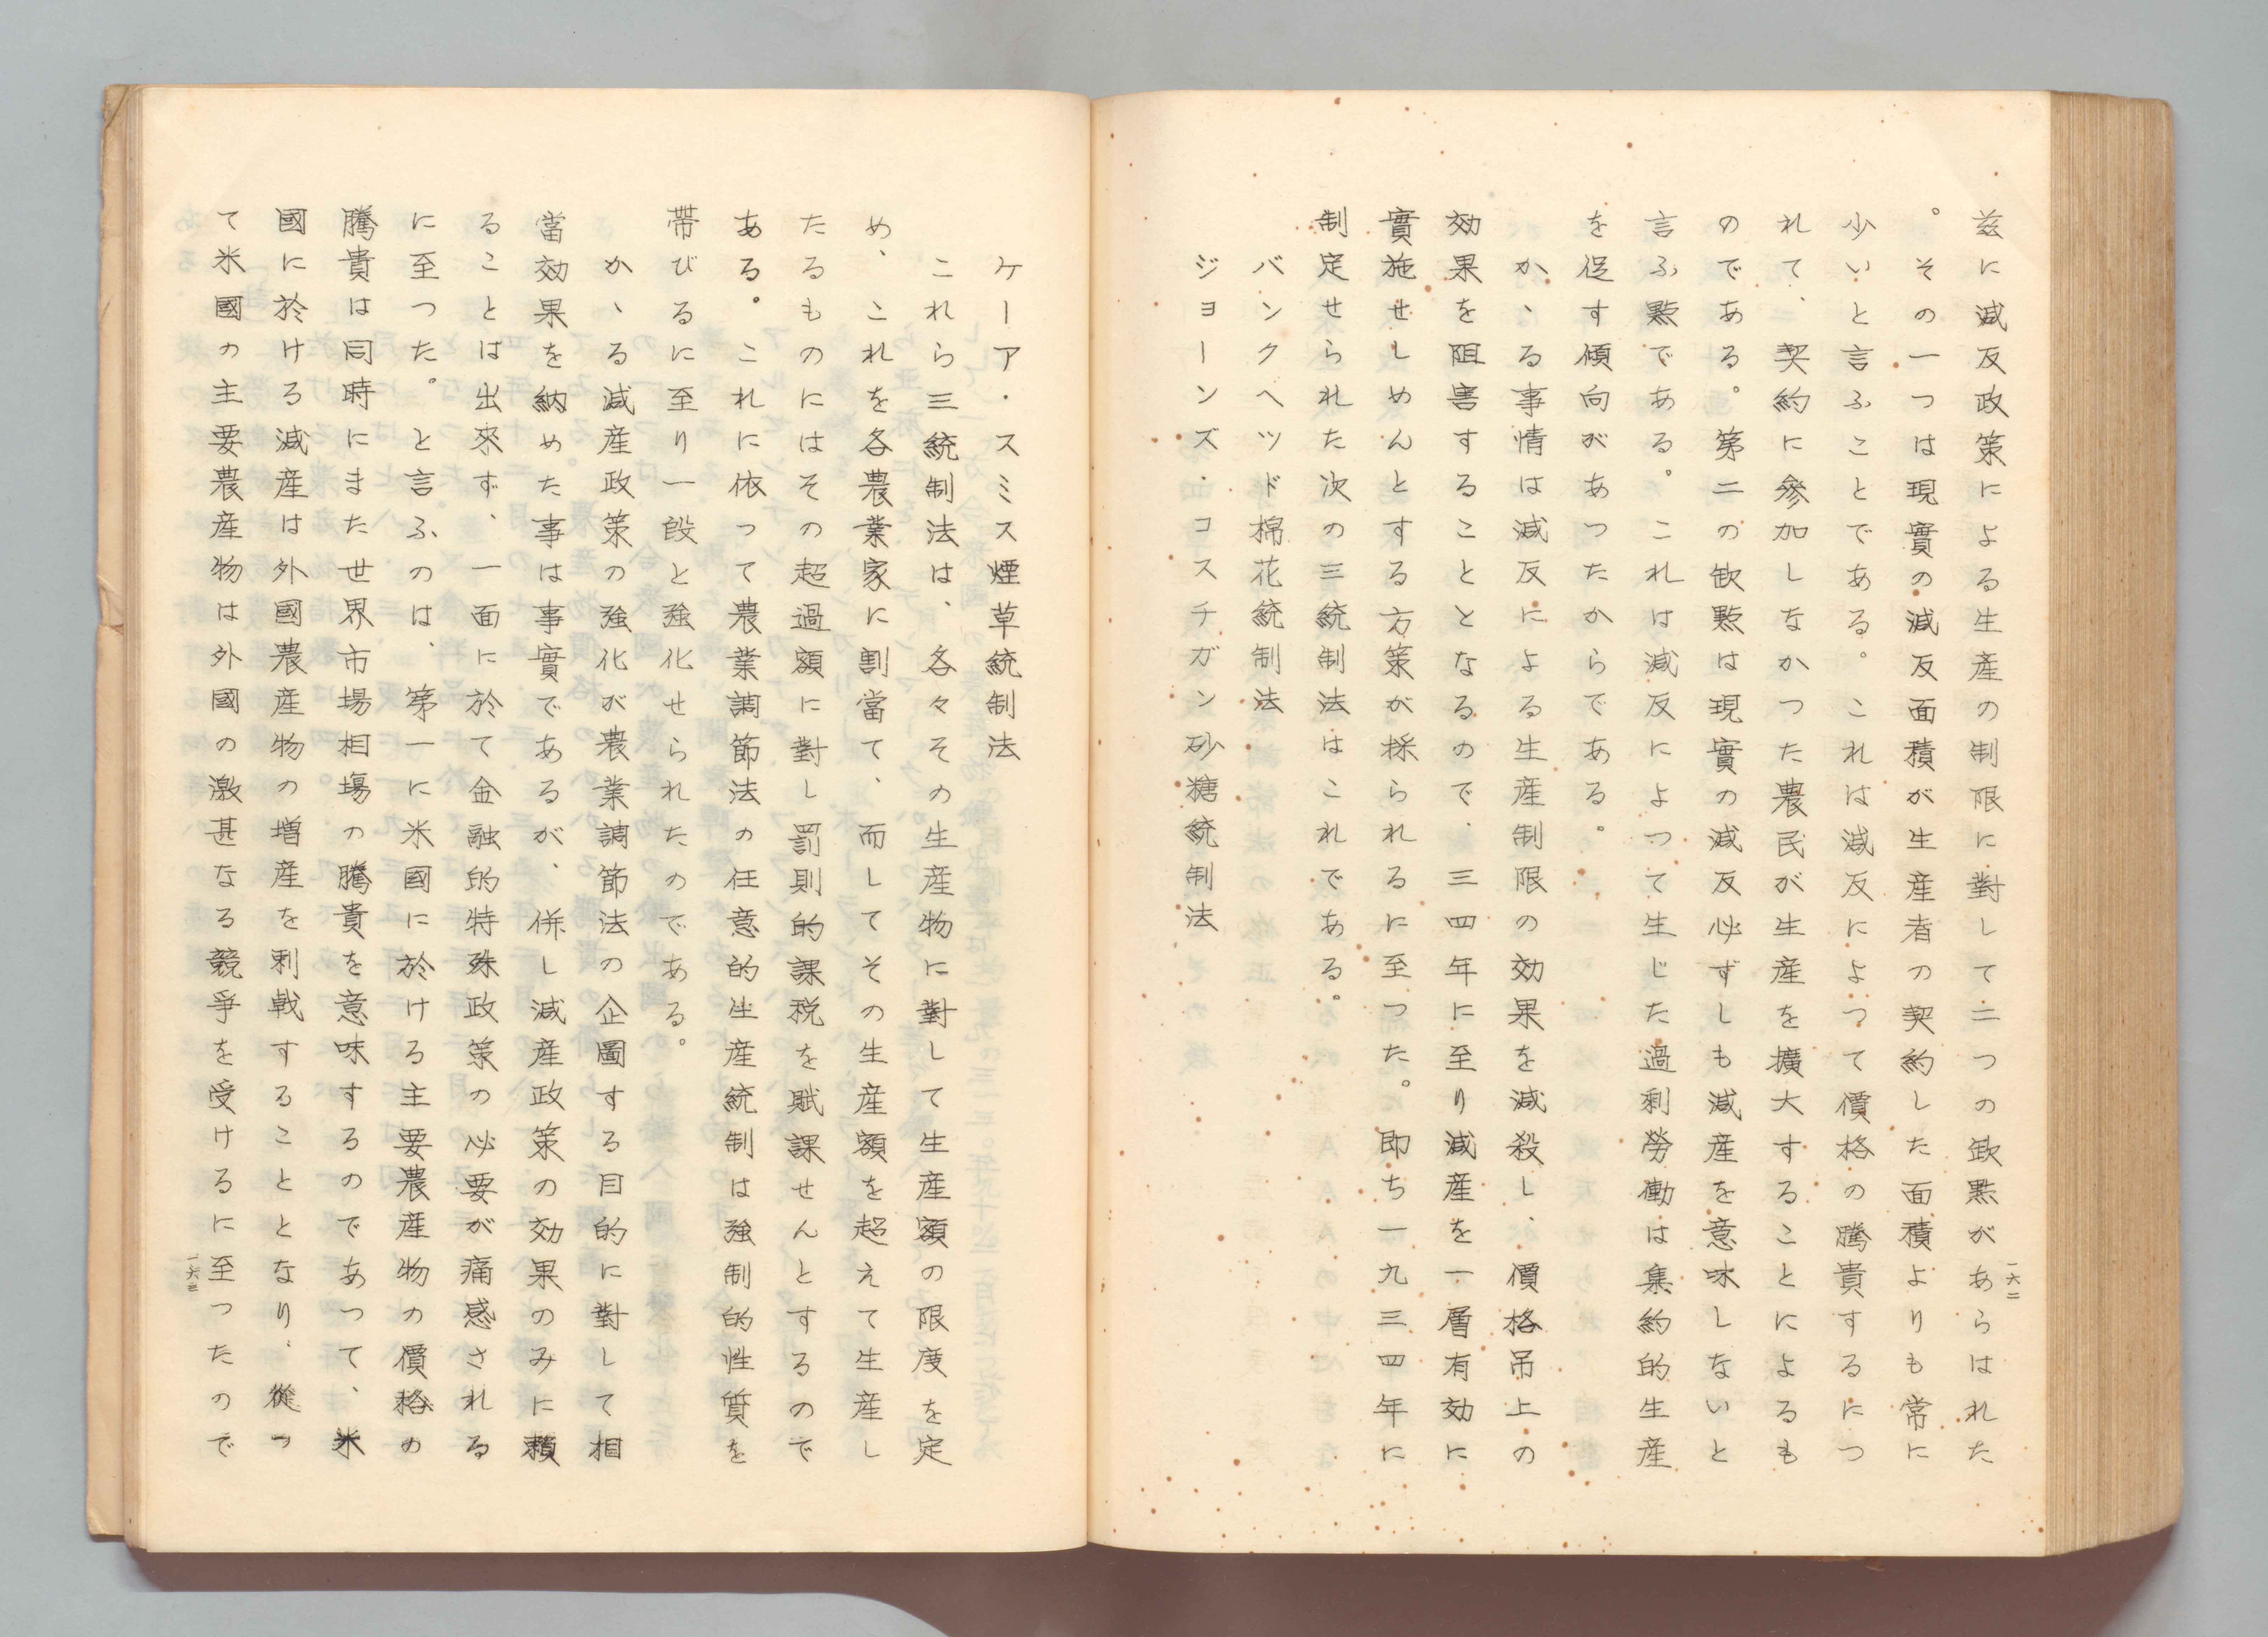 茲に減反政策による生産の制限に對して二つの欠點があらはれた
。その一つは現實の減反面積が生産者の契約した面積よりも常に
少いと言ふことである。これは減反によつて價格の騰貴するにつ
れて、契約に參加しなかつた農民が生産を擴大することによるも
のである。第二の欠點は現實の減反必ずしも減産を意味しないと
言ふ點である。これは減反によつて生じた過剰勞働は集約的生産
を促す傾向があつたからである。
かゝる事情は減反による生産制限の効果を減殺し、價格吊上の
効果を阻害することとなるので、三四年に至り減産を一層有効に
實施せしめんとする方策が採られるに至つた。即ち一九三四年に
制定せられた次の三統制法はこれである。
バンクヘツド棉花統制法
ジヨーンズ・コスチガン砂糖統制法
一六二
ケーア・スミス煙草統制法
これら三統制法は、各々その生産物に對して生産額の限度を定
め、これを各農業家に割當て、而してその生産額を超えて生産し
たるものにはその超過額に對し罰則的課税を賦課せんとするので
ある。これに依って農業調節法の任意的生産統制は強制的性質を
帯びるに至り一段と強化せられたのである。
かゝる減産政策の強化が農業調節法の企圖する目的に對して相
當効果を納めた事は事實であるが、併し減産政策の効果のみに頼
ることは出來ず、一面に於て金融的特殊政策の必要が痛感される
に至つた。と言ふのは、第一に米國に於ける主要農産物の價格の
騰貴は同時にまた世界市場相場の騰貴を意味するのであつて、米
國に於ける減産は外國農産物の増産を刺戟することとなり、從つ
て米國の主要農産物は外國の激甚なる競爭を受けるに至つたので
一六三